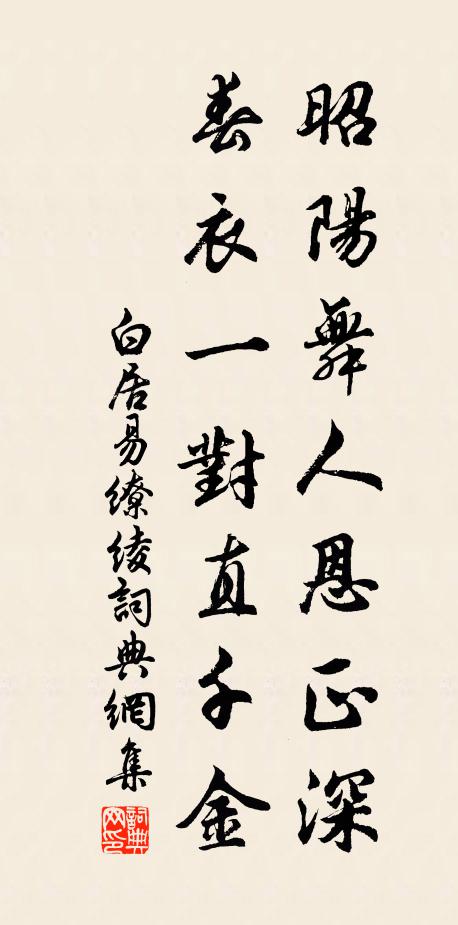 昭陽舞人恩正深
春衣一對直千金
白居易繚綾詞典網集
詞典
網印